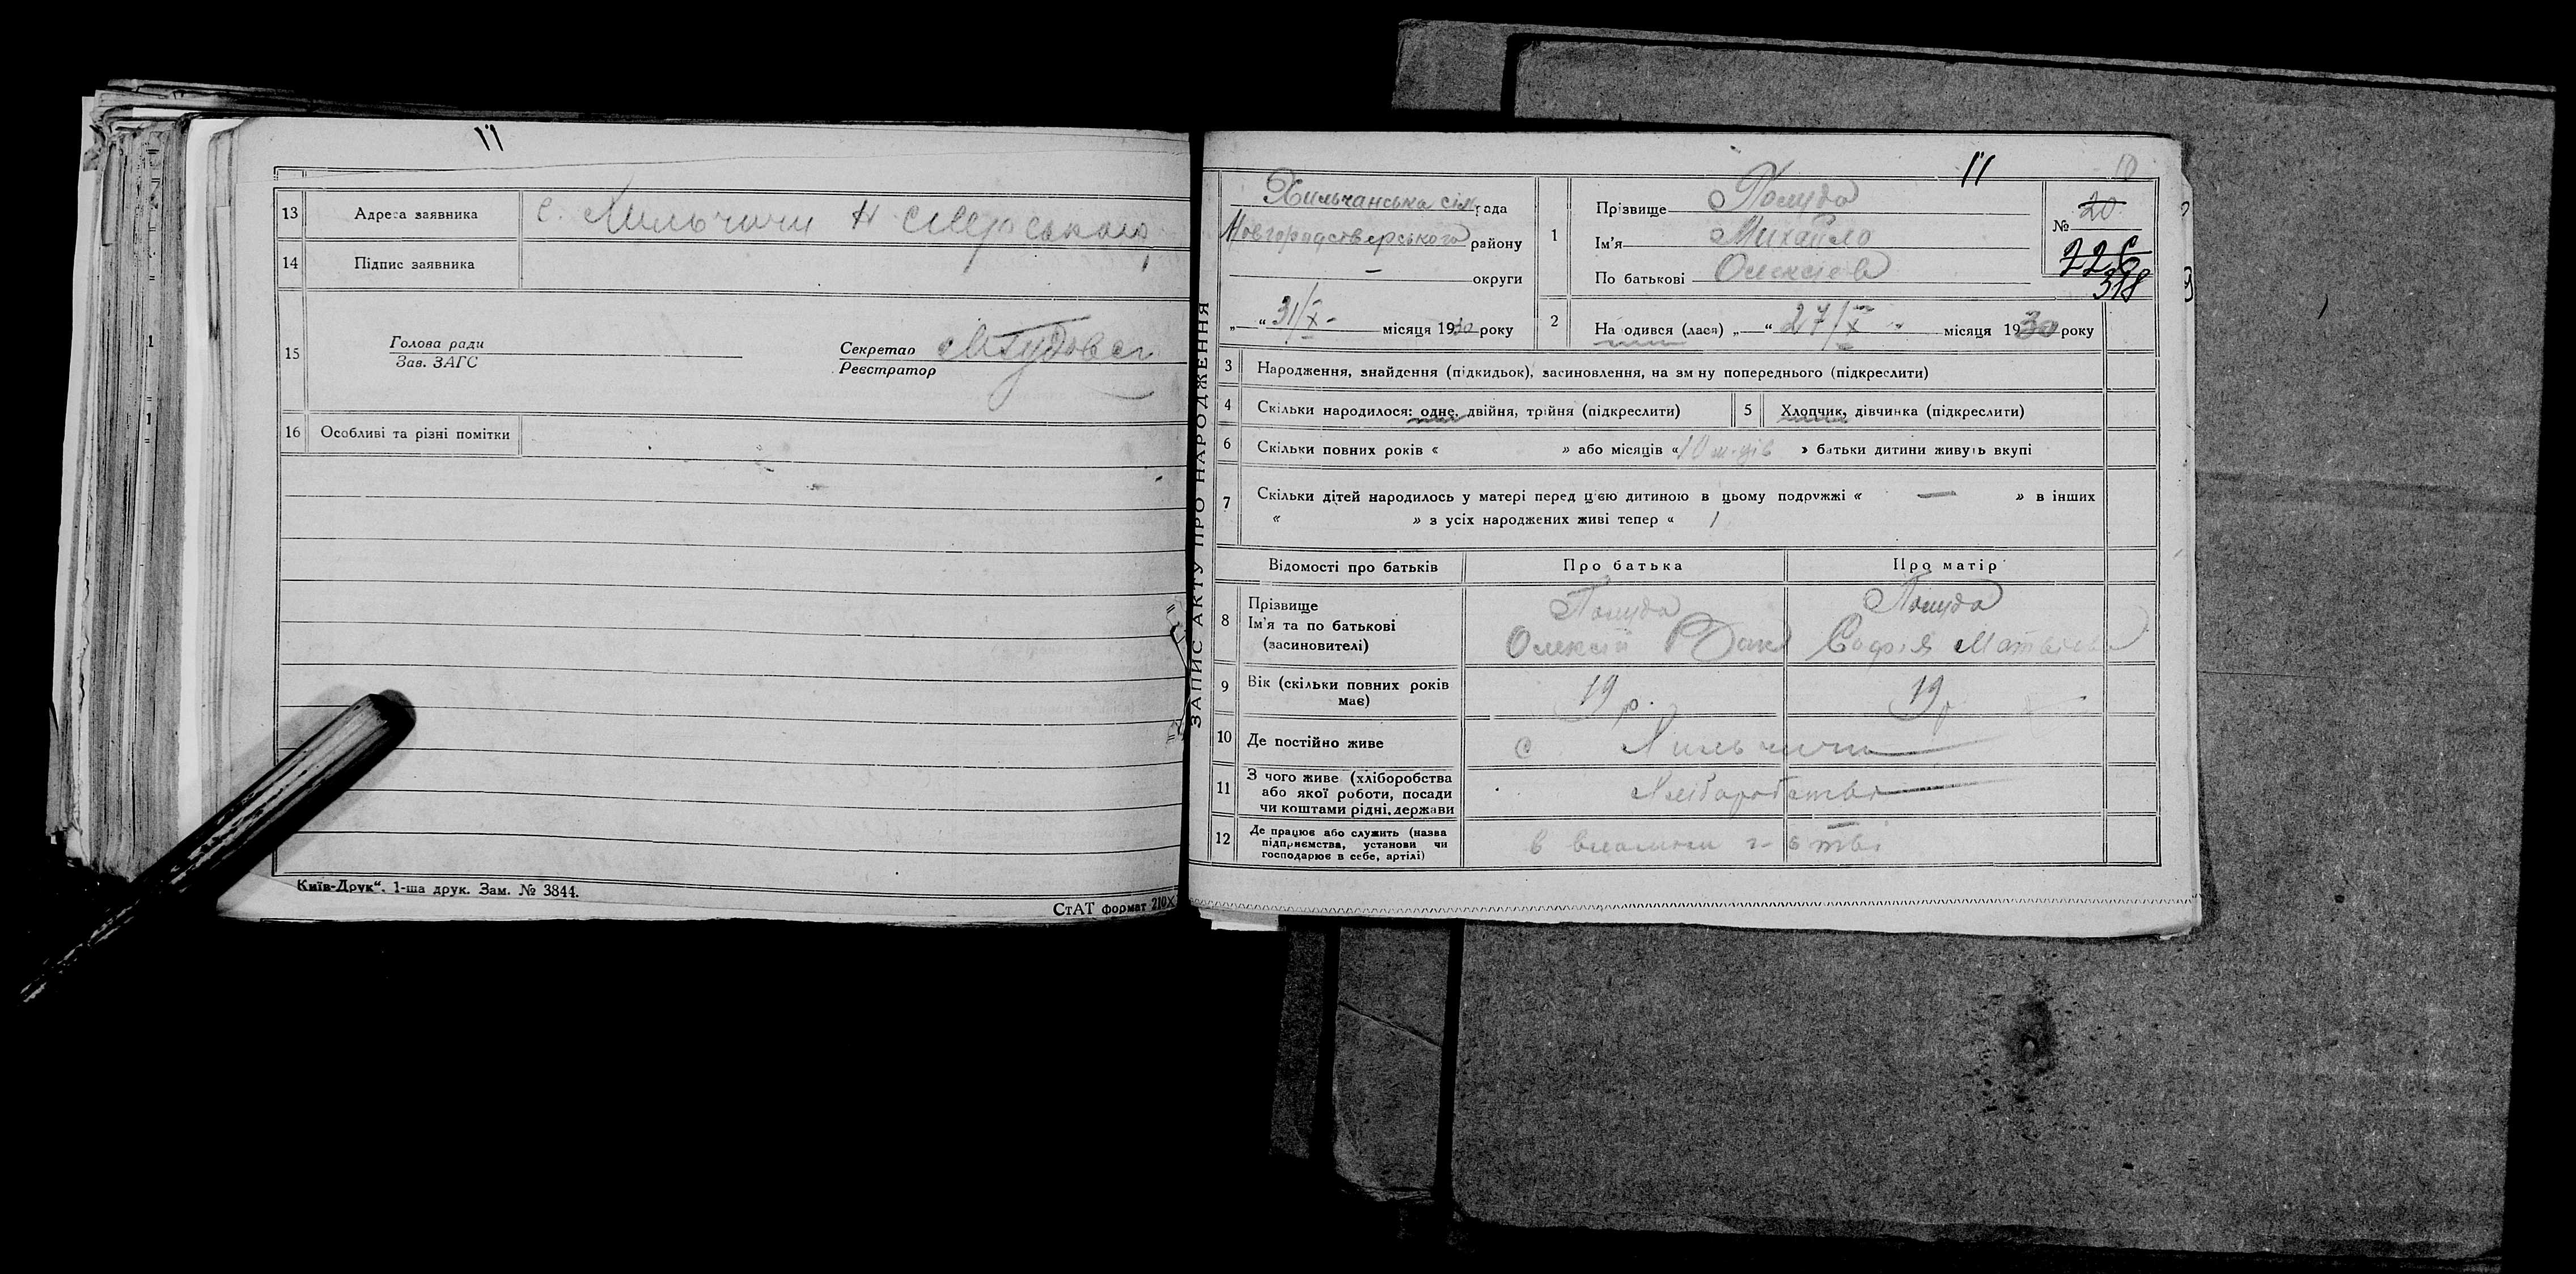 11
13 Адреса заявника с. Хильчичи Н Сіверського
14 Підпис заявника
15 Голова ради
Зав. ЗАГС
Секретар
Реєстратор
16 Особливі та різні помітки
Київ-Друк“. 1-ша друк. Зам. № 3844.
СтАТ формат 210X
ЗАПИС АКТУ ПРО НАРОДЖЕННЯ
11
18
Хильчанська сільрада
Новгородсіверського району
— округи
„ “ 31/X - місяця 1930 року
1 Прізвище
Ім'я Михайло
По батькові Олексієв
№ 20
226
318
2 Народився (лася) „ “ 27/X - місяця 1930 року
3 Народження, знайдення (підкидьок), засиновлення, на зміну попереднього (підкреслити)
4 Скільки народилося: одне, двійня, трійня (підкреслити)
5 Хлопчик, дівчинка (підкреслити)
6 Скільки повних років « » або місяців « 10 м-ців » батьки дитини живуть вкупі
7 Скільки дітей народилось у матері перед цією дитиною в цьому подружжі « — » в інших
« » з усіх народжених живі тепер « 1
Відомості про батьків Про батька Про матір
8 Прізвище
Ім'я та по батькові
(засиновителі)
Олексій
Софія Матвієва
9 Вік (скільки повних років
має)
19 р. 19 р
10 Де постійно живе с Хильчичи
11 З чого живе (хліборобства
або якої роботи, посади
чи коштами рідні, держави
Хліборобство
12 Де працює або служить (назва
підприємства, установи чи
господарює в себе, артілі)
в власном г-стві